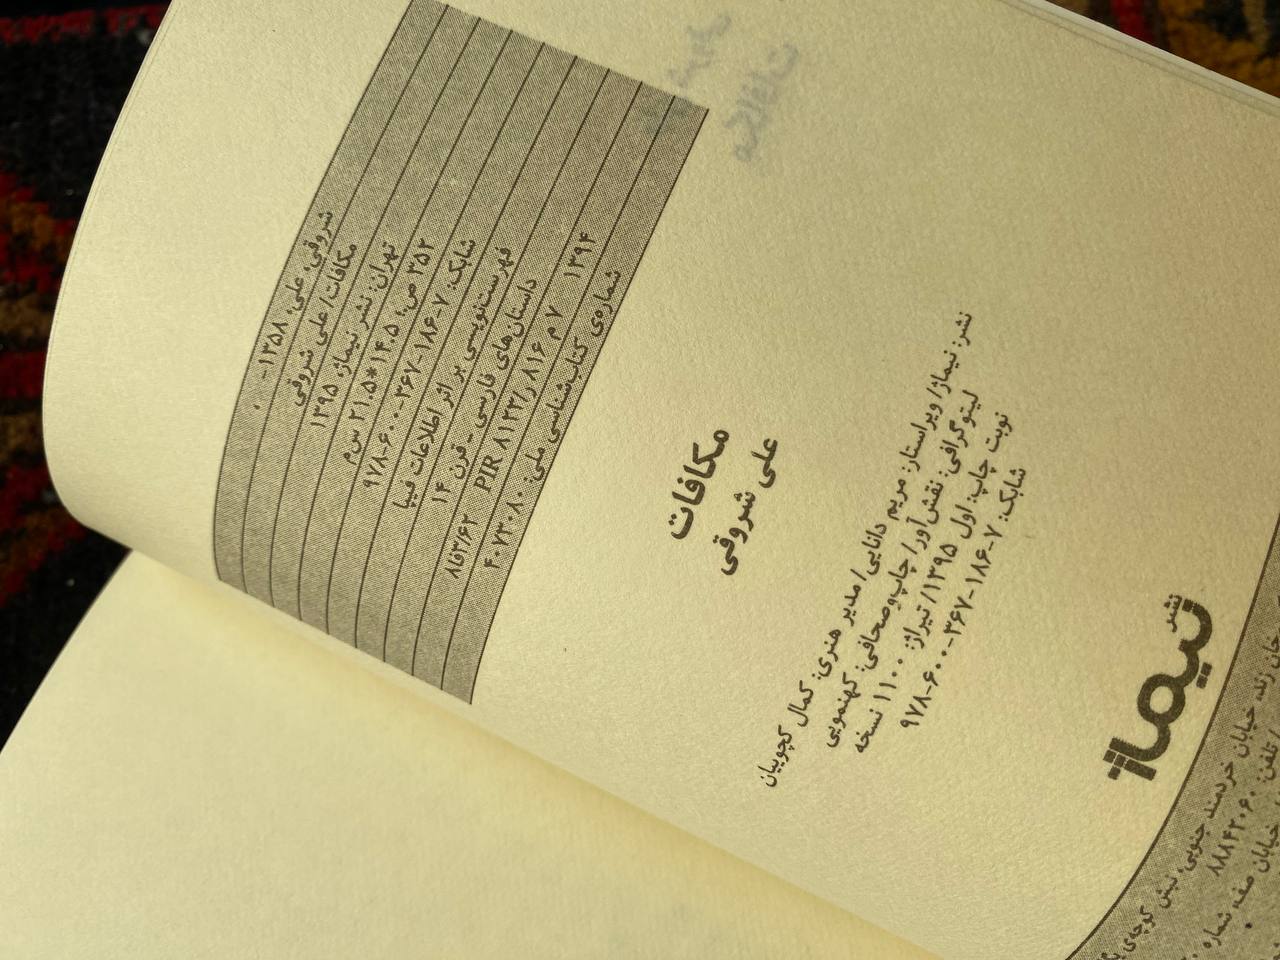 شروقی، علی، ۱۳۵۸- .
مکافات/ علی شروقی
تهران: نشر نیماژ، ۱۳۹۵
۲۵۲ ص؛ ۱۴.۵*۲۱.۵ س‌م
شابک: ۷-۱۸۶-۳۶۷-۶۰۰-۹۷۸
فهرست‌نویسی بر اثر اطلاعات فیپا
داستان‌های فارسی - قرن ۱۴
۱۳۹۴ ۷ م ۸۱۶ ر/PIR ۸۱۲۳ ۸فا۳/۶۲
شماره‌ی کتاب‌شناسی ملی: ۴۰۷۳۰۸۰
مکافات
علی شروقی
نشر: نیماژ/ ویراستار: مریم دانایی/ مدیر هنری: کمال کچوییان
لیتوگرافی: نقش‌آور/ چاپ‌وصحافی: کهنمویی
نوبت چاپ: اول ۱۳۹۵/ تیراژ: ۱۱۰۰ نسخه
شابک: ۷-۱۸۶-۳۶۷-۶۰۰-۹۷۸
نشر
نیماژ
خان زند، خیابان خردمند جنوبی، نبش کوچه‌ی
/ تلفن: ۸۸۸۴۲۰۶۰
خیابان صف، شماره